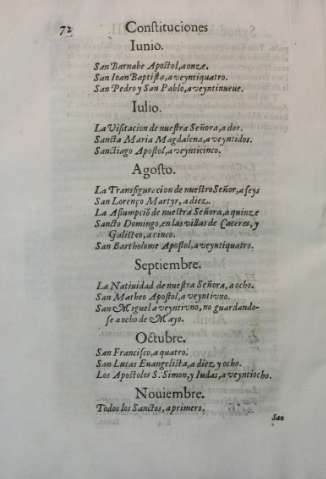 72 Constituciones
Iunio.
San Barnabe Apostol, a onze.
San Ioan Baptista, a veyntiquatro.
San Pedro y San Pablo, a veyntinueue.
Iulio.
La Visitacion de nuestra Señora, a dos.
Sancta Maria Magdalena, a veyntidos.
Sanctiago Apostol, a veynticinco.
Agosto.
La Transfiguracion de nuestro Señor, a seys
San Lorenço Martyr, a diez.
La Assumpciõ de nuestra Señora, a quinze
Sancto Domingo, en las villas de Caceres, y
Galisteo, a cinco.
San Bartholome Apostol, a veyntiquatro.
Septiembre.
La Natiuidad de nuestra Señora, a ocho.
San Matheo Apostol, a veyntivno.
San Miguel a veyntivno, no guardando-
se a ocho de Mayo.
Octubre.
San Francisco, a quatro.
San Lucas Euangelista, a diez y ocho.
Los Apostoles S. Simon, y Iudas, a veyntiocho.
Nouiembre.
Todos los Sanctos, a primero.
San